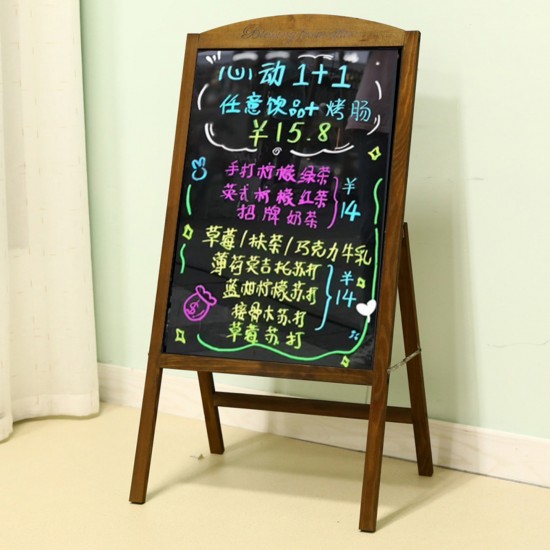 心动1+1
任意饮品+烤肠
¥15.8
手打柠檬绿茶
英式柠檬红茶
招牌奶茶
¥14
草莓/抹茶/巧克力牛乳
薄荷莫吉托苏打
蓝柑柠檬苏打
接骨木苏打
草莓苏打
¥14